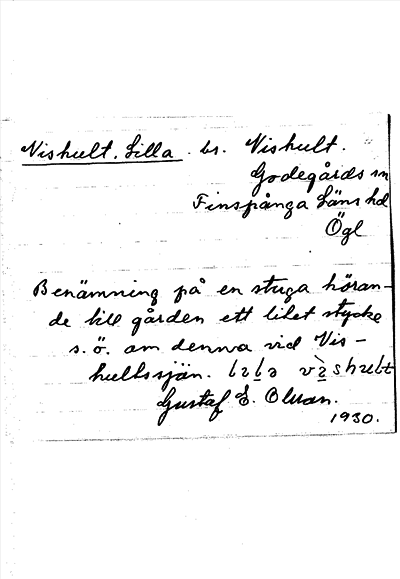 Vishult. Lilla bs. Vishult.
Godegårds sn
Finspånga läns hd
Ögl
Benämning på en stuga höran-
de till gården ett litet stycke
s.ö. om denna vid Vis-
hultssjön.
Gustaf E. Olsson.
1930.